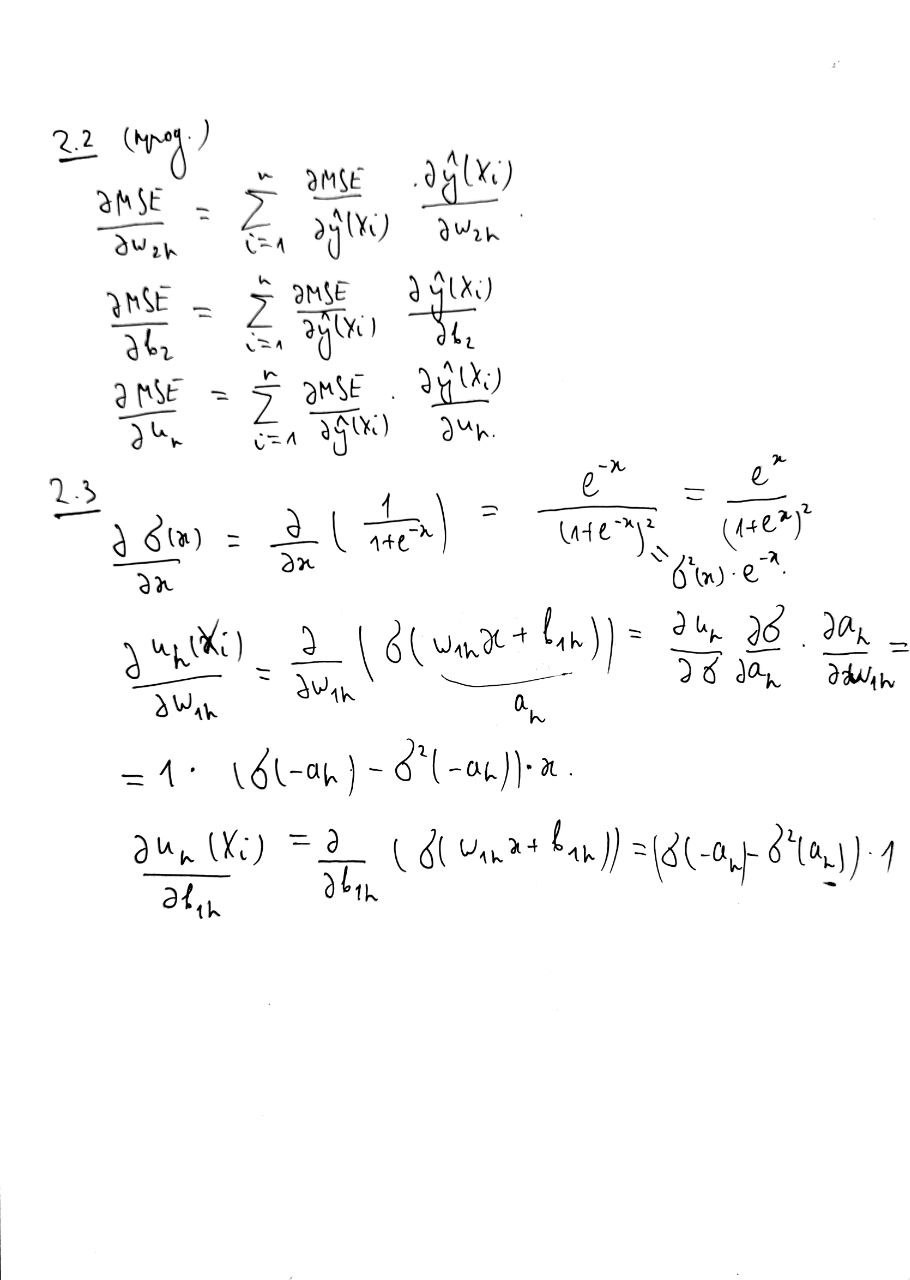 2.2 (прод.)
∂MSE/∂w₂ₕ = Σᵢ₌₁ⁿ ∂MSE/∂ŷ(Xᵢ) · ∂ŷ(Xᵢ)/∂w₂ₕ.
∂MSE/∂b₂ = Σᵢ₌₁ⁿ ∂MSE/∂ŷ(Xᵢ) ∂ŷ(Xᵢ)/∂b₂
∂MSE/∂uₕ = Σᵢ₌₁ⁿ ∂MSE/∂ŷ(Xᵢ) · ∂ŷ(Xᵢ)/∂uₕ.
2.3
∂σ(x)/∂x = ∂/∂x (1/(1+e⁻ˣ)) = e⁻ˣ/(1+e⁻ˣ)² = eˣ/(1+eˣ)²
= σ²(x)·e⁻ˣ.
∂uₕ(Xᵢ)/∂w₁ₕ = ∂/∂w₁ₕ (σ(w₁ₕx + b₁ₕ)) = ∂uₕ/∂σ ∂σ/∂aₕ · ∂aₕ/∂w₁ₕ =
aₕ
= 1 · (σ(-aₕ) - σ²(-aₕ))·x.
∂uₕ(Xᵢ)/∂b₁ₕ = ∂/∂b₁ₕ (σ(w₁ₕx + b₁ₕ)) = (σ(-aₕ) - σ²(aₕ))·1